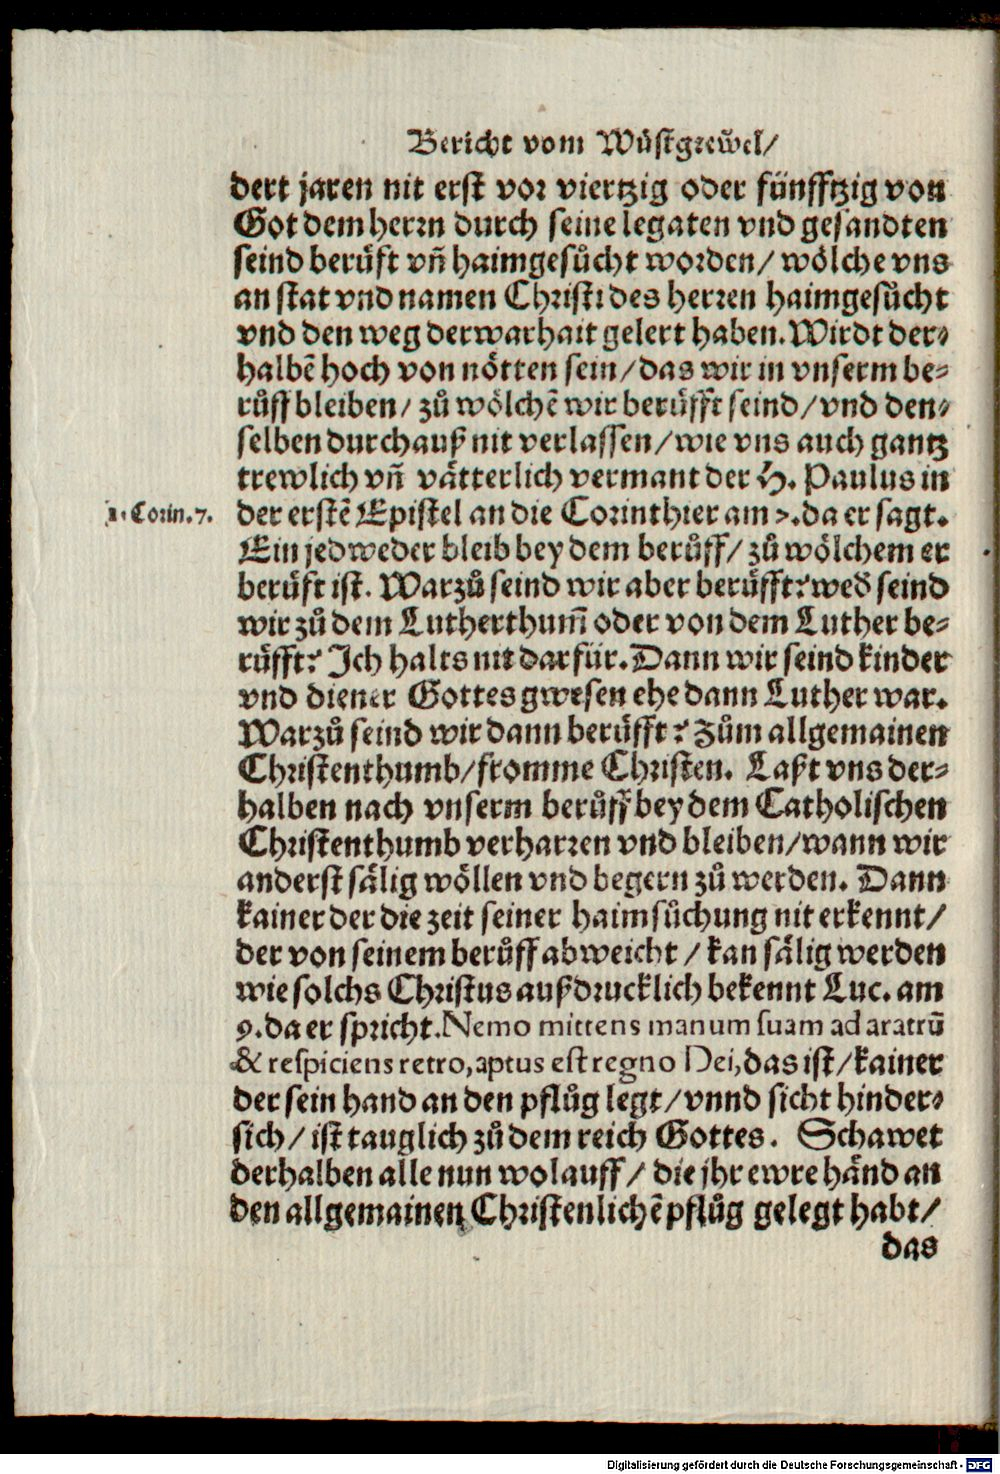 Bericht vom Wůstgrewel/
dert jaren nit erst vor viertzig oder fünfftzig von
Got dem herrn durch seine legaten vnd gesandten
seind berüft vñ haimgesůcht worden/ wölche vns
an stat vnd namen Christi des herren haimgesůcht
vnd den weg der warhait gelert haben. Wirdt der-
halbẽ hoch von nötten sein/das wir in vnserm be-
růff bleiben/ zů wölchẽ wir berüfft seind/vnd den-
selben durchauß nit verlassen/wie vns auch gantz
trewlich vñ vätterlich vermant der H. Paulus in
1. Corin. 7.
der erstẽ Epistel an die Corinthier am 7. da er sagt.
Ein jedweder bleib bey dem berůff/ zů wölchem er
berüft ist. Warzů seind wir aber berüfft? wed̕ seind
wir zů dem Lutherthum̃ oder von dem Luther be-
rüfft? Ich halts nit darfür. Dann wir seind kinder
vnd diener Gottes gwesen ehe dann Luther war.
Warzů seind wir dann berüfft? Zům allgemainen
Christenthumb/fromme Christen. Laßt vns der-
halben nach vnserm berůff bey dem Catholischen
Christenthumb verharren vnd bleiben/wann wir
anderst sälig wöllen vnd begern zů werden. Dann
kainer der die zeit seiner haimsůchung nit erkennt/
der von seinem berůff abweicht/ kan sälig werden
wie solchs Christus außdrucklich bekennt Luc. am
9. da er spricht. Nemo mittens manum suam ad aratrũ
& respiciens retro, aptus est regno Dei, das ist/kainer
der sein hand an den pflůg legt/vnnd sicht hinder-
sich/ ist tauglich zů dem reich Gottes. Schawet
derhalben alle nun wolauff/ die jhr ewre händ an
den allgemainen Christenlichẽ pflůg gelegt habt/
das
Digitalisierung gefördert durch die Deutsche Forschungsgemeinschaft - DFG